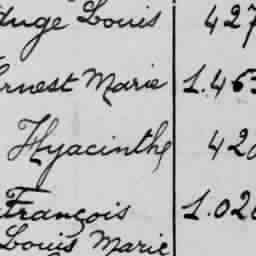 Ange Louis 427
Ernest Marie 1.463
Hyacinthe 420
François 1.020
Louis Marie